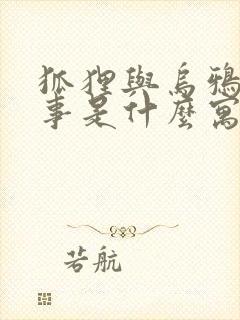 狐狸與烏鴉
事是什麼寓
若航